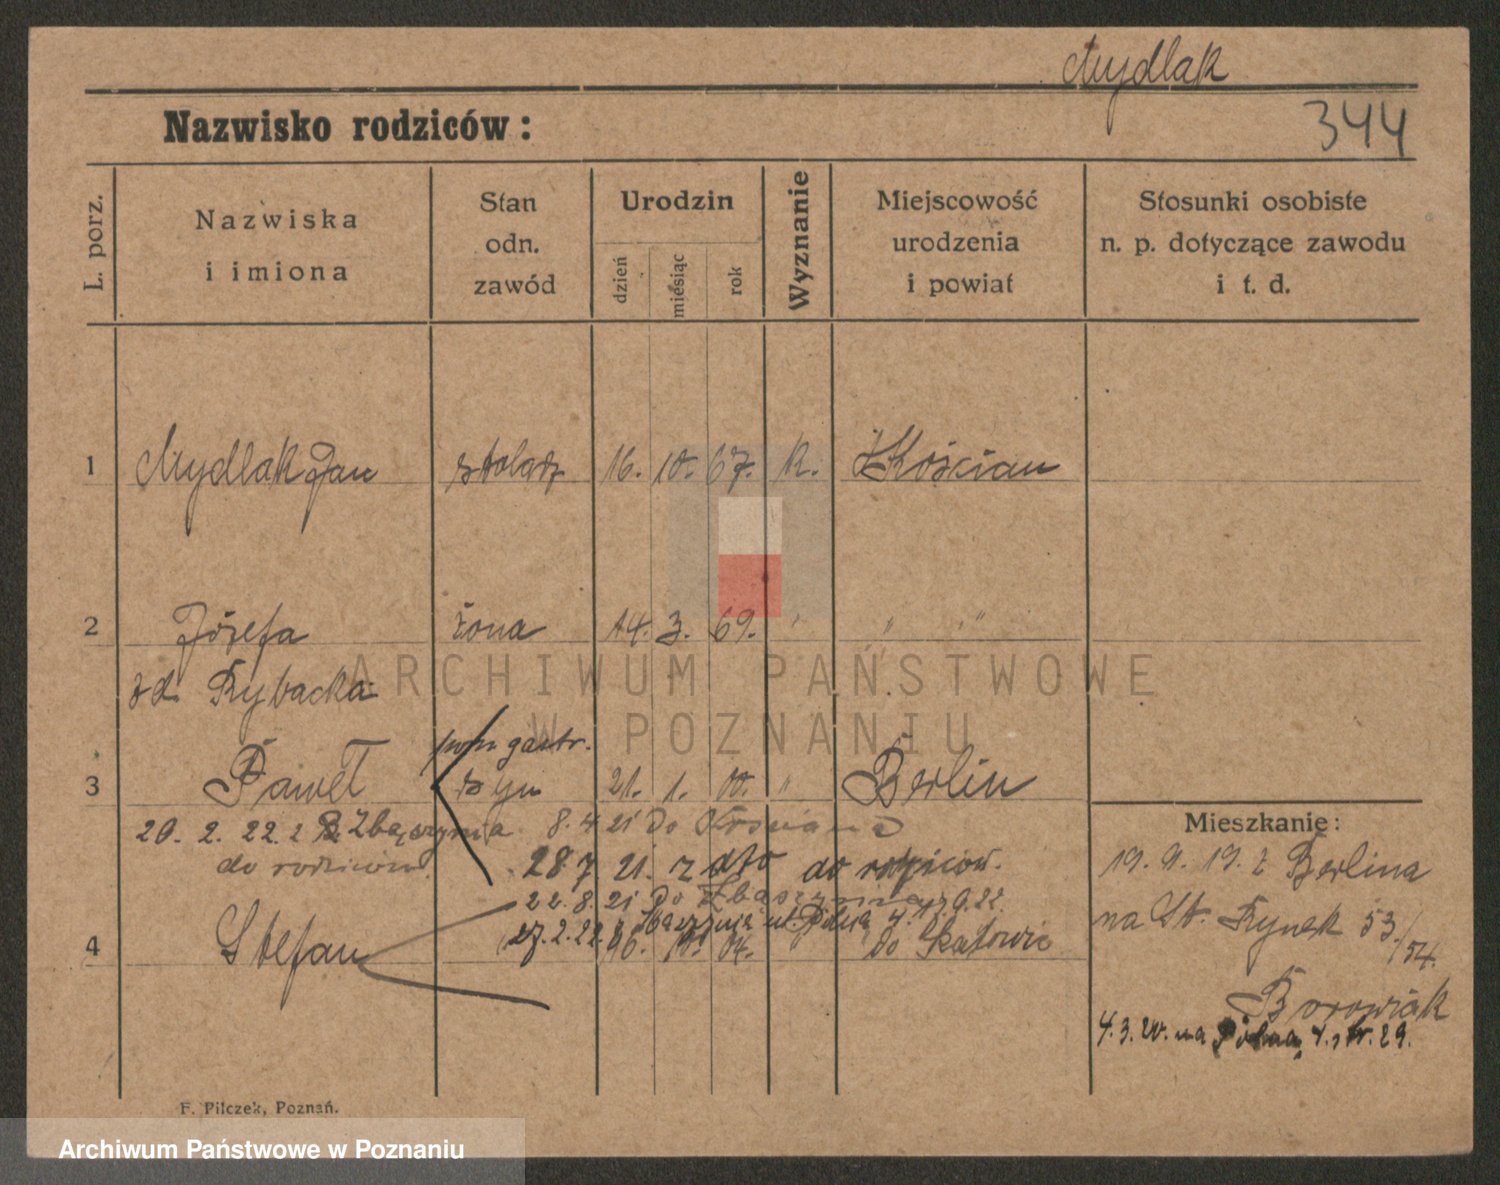 Mydlak
Nazwisko rodziców:
344
L. porz.
Nazwiska
i imiona
Stan
odn.
zawód
Urodzin
dzień
miesiąc
rok
Wyznanie
Miejscowość
urodzenia
i powiat
Stosunki osobiste
n. p. dotyczące zawodu
i t. d.
1 Mydlak Jan stolarz 16. 10. 67. k. Kościan
2 Józefa żona 14. 3. 69. " " "
zd. Rybacka
gastr.
3 Paweł syn 21. 1. 00. " Berlin
20. 2. 22. z Zbąszynia 8. 4 21 Do Kościana
do rodziców. 28 7 21. z dto do rodziców.
22. 8. 21 Do Zbąszynia 9. 22
27. 2. 22. Zbąszynia ul. Polna 4.
4 Stefan 16. 10. 04. Do Katowic
Mieszkanie:
19. 9. 19. z Berlina
na St. Rynek 53/54.
Borowiak
4. 3. 20. na Polna 4. tr. 29.
F. Pilczek, Poznań.
ARCHIWUM PAŃSTWOWE
W POZNANIU
Archiwum Państwowe w Poznaniu